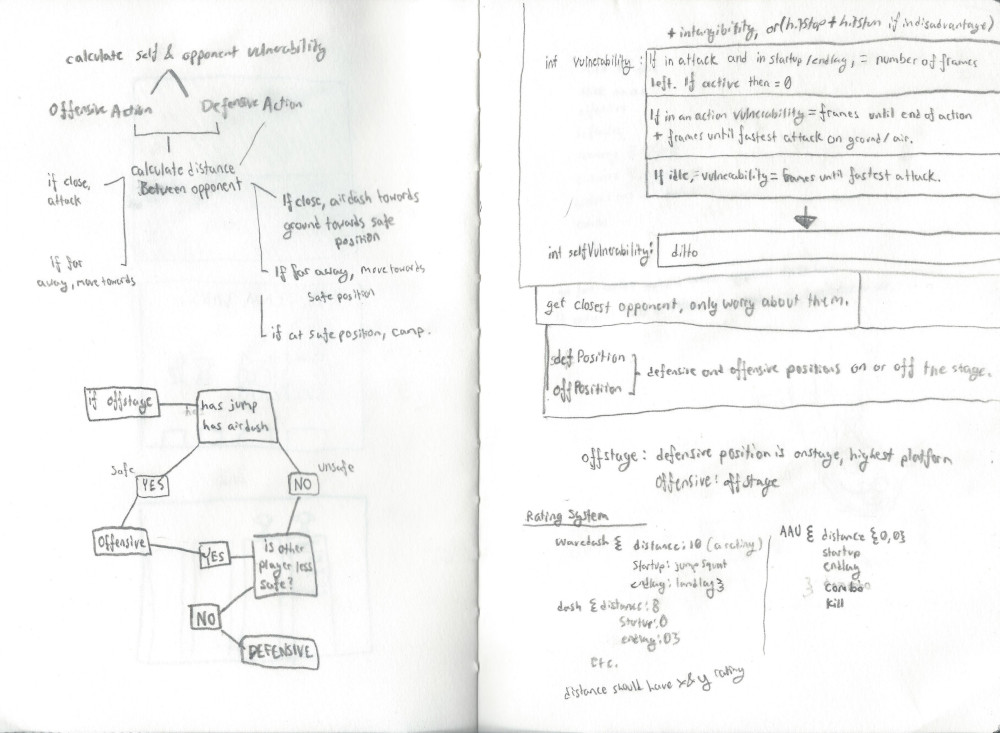 calculate self & opponent vulnerability
Offensive Action
Defensive Action
calculate distance
Between opponent
if close,
attack
if far
away, move towards
If close, airdash towards
ground towards safe
position
If far away, move towards
safe position
if at safe position, camp.
if offstage
has jump
has airdash
safe
YES
unsafe
NO
Offensive
YES
is other
player less
safe?
NO
DEFENSIVE
+ intangibility, or (hitstop + hitstun if in disadvantage)
int vulnerability: If in attack and in startup/endlag, = number of frames
left. If active then = 0
If in an action vulnerability = frames until end of action
+ frames until fastest attack on ground/air.
If idle, = vulnerability = frames until fastest attack.
int selfVulnerability: ditto
get closest opponent, only worry about them.
defPosition
offPosition
defensive and offensive positions on or off the stage.
offstage: defensive position is onstage, highest platform
offensive: offstage
Rating System
wavedash { distance: 10 (a rating)
startup: jump squat
endlag: landlag }
dash { distance: 8
startup: 0
endlag: 0 }
etc.
distance should have x & y rating
AAU { distance {0,0}
startup
endlag
} combo
kill